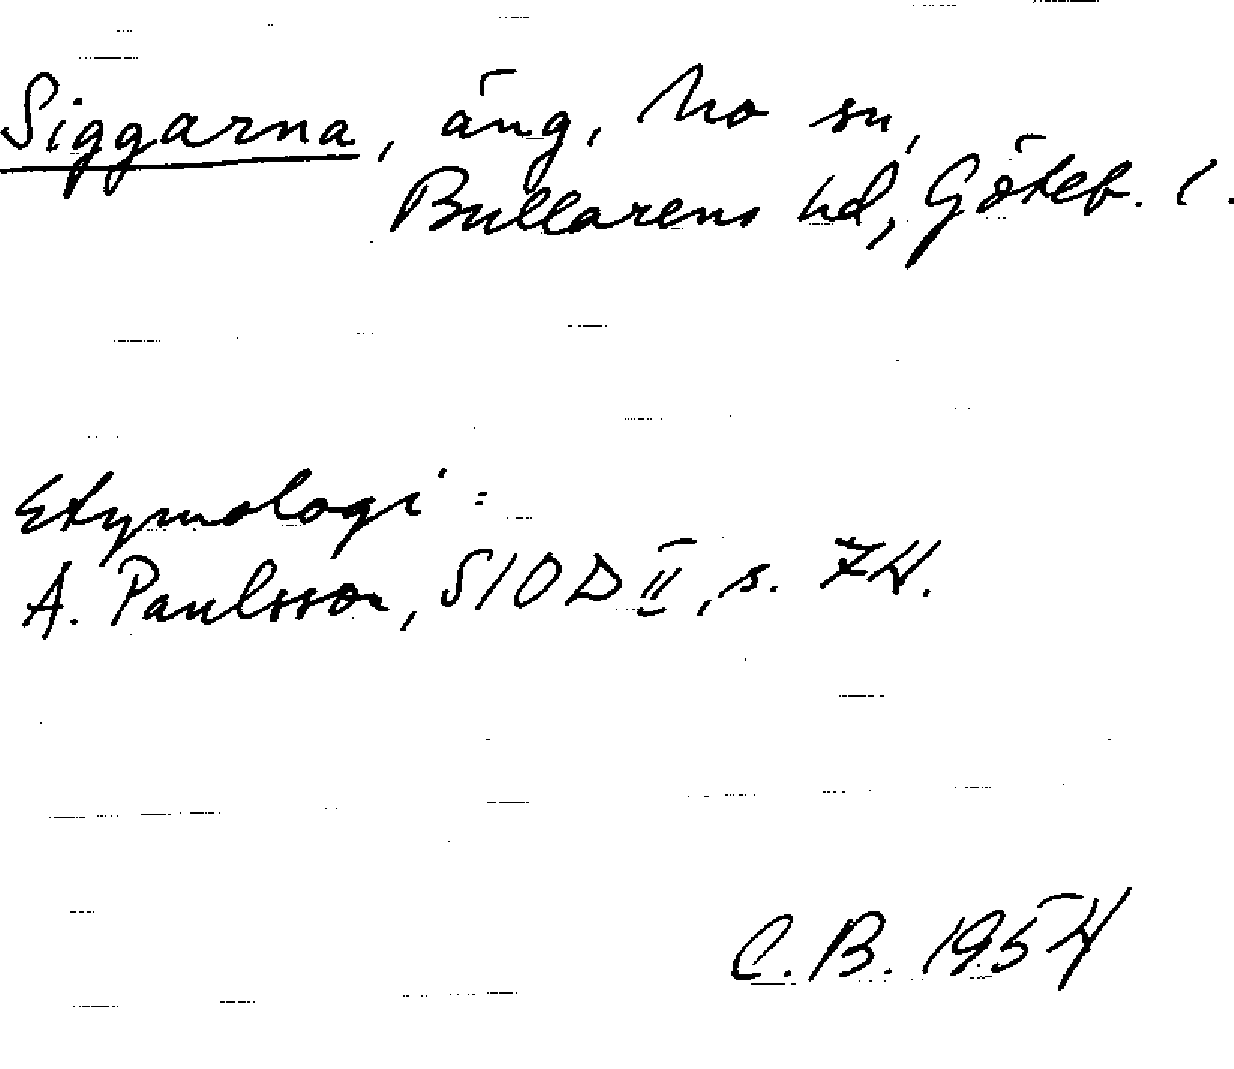 Siggarna, äng, Mo sn,
Bullarens hd, Göteb. l.
Etymologi:
A. Paulsson, SIOD II, s. 74.
C.B. 1954